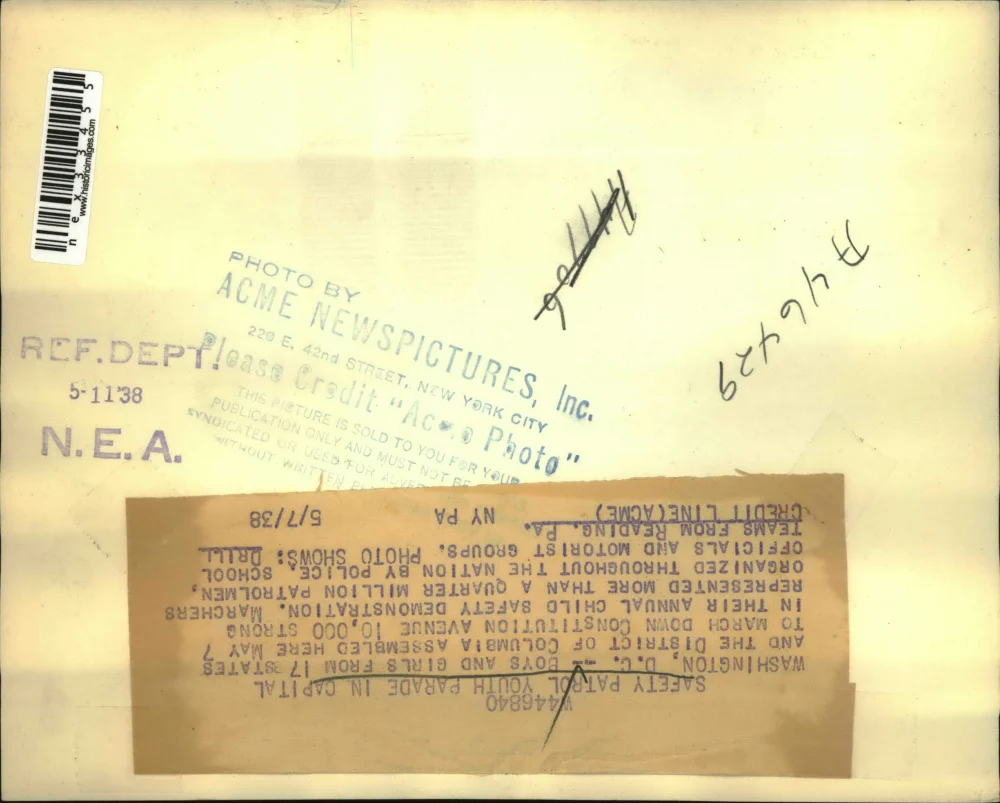 nex33455
www.historicimages.com
PHOTO BY
ACME NEWSPICTURES, Inc.
220 E. 42nd STREET, NEW YORK CITY
Please Credit "Acme Photo"
THIS PICTURE IS SOLD TO YOU FOR YOUR
PUBLICATION ONLY AND MUST NOT BE
SYNDICATED OR USED FOR
WITHOUT WRITTEN
REF. DEPT.
5-11'38
N.E.A.
A446429
W446840
SAFETY PATROL YOUTH PARADE IN CAPITAL
WASHINGTON, D.C. -- BOYS AND GIRLS FROM 17 STATES
AND THE DISTRICT OF COLUMBIA ASSEMBLED HERE MAY 7
TO MARCH DOWN CONSTITUTION AVENUE 10,000 STRONG
IN THEIR ANNUAL CHILD SAFETY DEMONSTRATION. MARCHERS
REPRESENTED MORE THAN A QUARTER MILLION PATROLMEN,
ORGANIZED THROUGHOUT THE NATION BY POLICE, SCHOOL
OFFICIALS AND MOTORIST GROUPS. PHOTO SHOWS: DRILL
TEAMS FROM READING, PA.
CREDIT LINE(ACME) NY PA 5/7/38